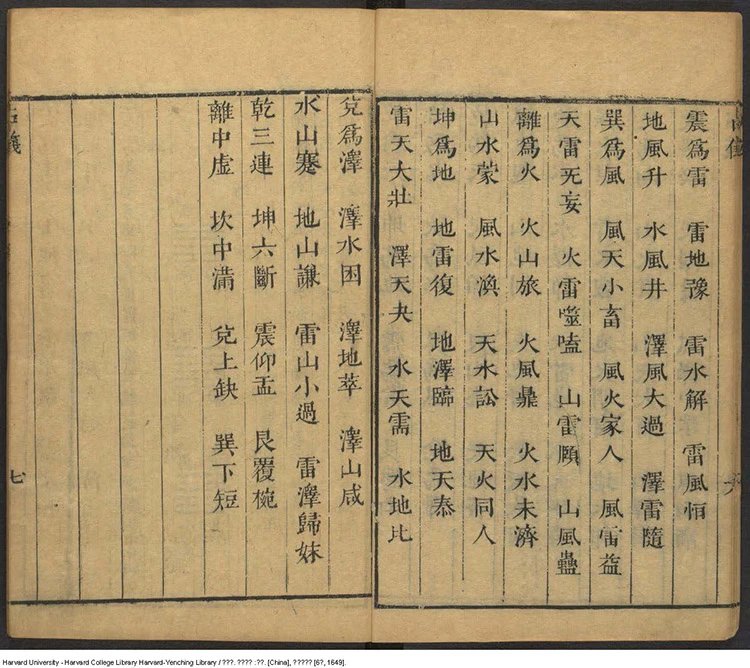 震爲雷 雷地豫 雷水解 雷風恒
地風升 水風井 澤風大過 澤雷隨
巽爲風 風天小畜 風火家人 風雷益
天雷无妄 火雷噬嗑 山雷頤 山風蠱
離爲火 火山旅 火風鼎 火水未濟
山水蒙 風水渙 天水訟 天火同人
坤爲地 地雷復 地澤臨 地天泰
雷天大壯 澤天夬 水天需 水地比
兌爲澤 澤水困 澤地萃 澤山咸
水山蹇 地山謙 雷山小過 雷澤歸妹
乾三連 坤六斷 震仰盂 艮覆椀
離中虛 坎中滿 兌上缺 巽下短
七
Harvard University - Harvard College Library Harvard-Yenching Library / ???. ???? :??. [China], ????? [6?, 1649].